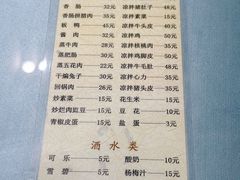 香肠 32元 凉拌猪肚子 48元
香肠拼腊肉 35元 凉拌素菜 15元
板鸭 45元 凉拌牛头皮 40元
酱肉 32元 凉拌鸡 50元
蒸牛肉 28元 凉拌核桃肉 35元
蒸肥肠 30元 凉拌鸡脚皮 50元
蒸五花肉 22元 凉拌牛毛肚 48元
干煸兔子 30元 凉拌心力 35元
回锅肉 26元 凉拌猪头皮 35元
炒素菜 15元 花生米 15元
炒烂肉豇豆 18元 豆花 10元
青椒皮蛋 18元 盐蛋 3元
酒水类
可乐 5元 酸奶 10元
雪碧 5元 杨梅汁 15元